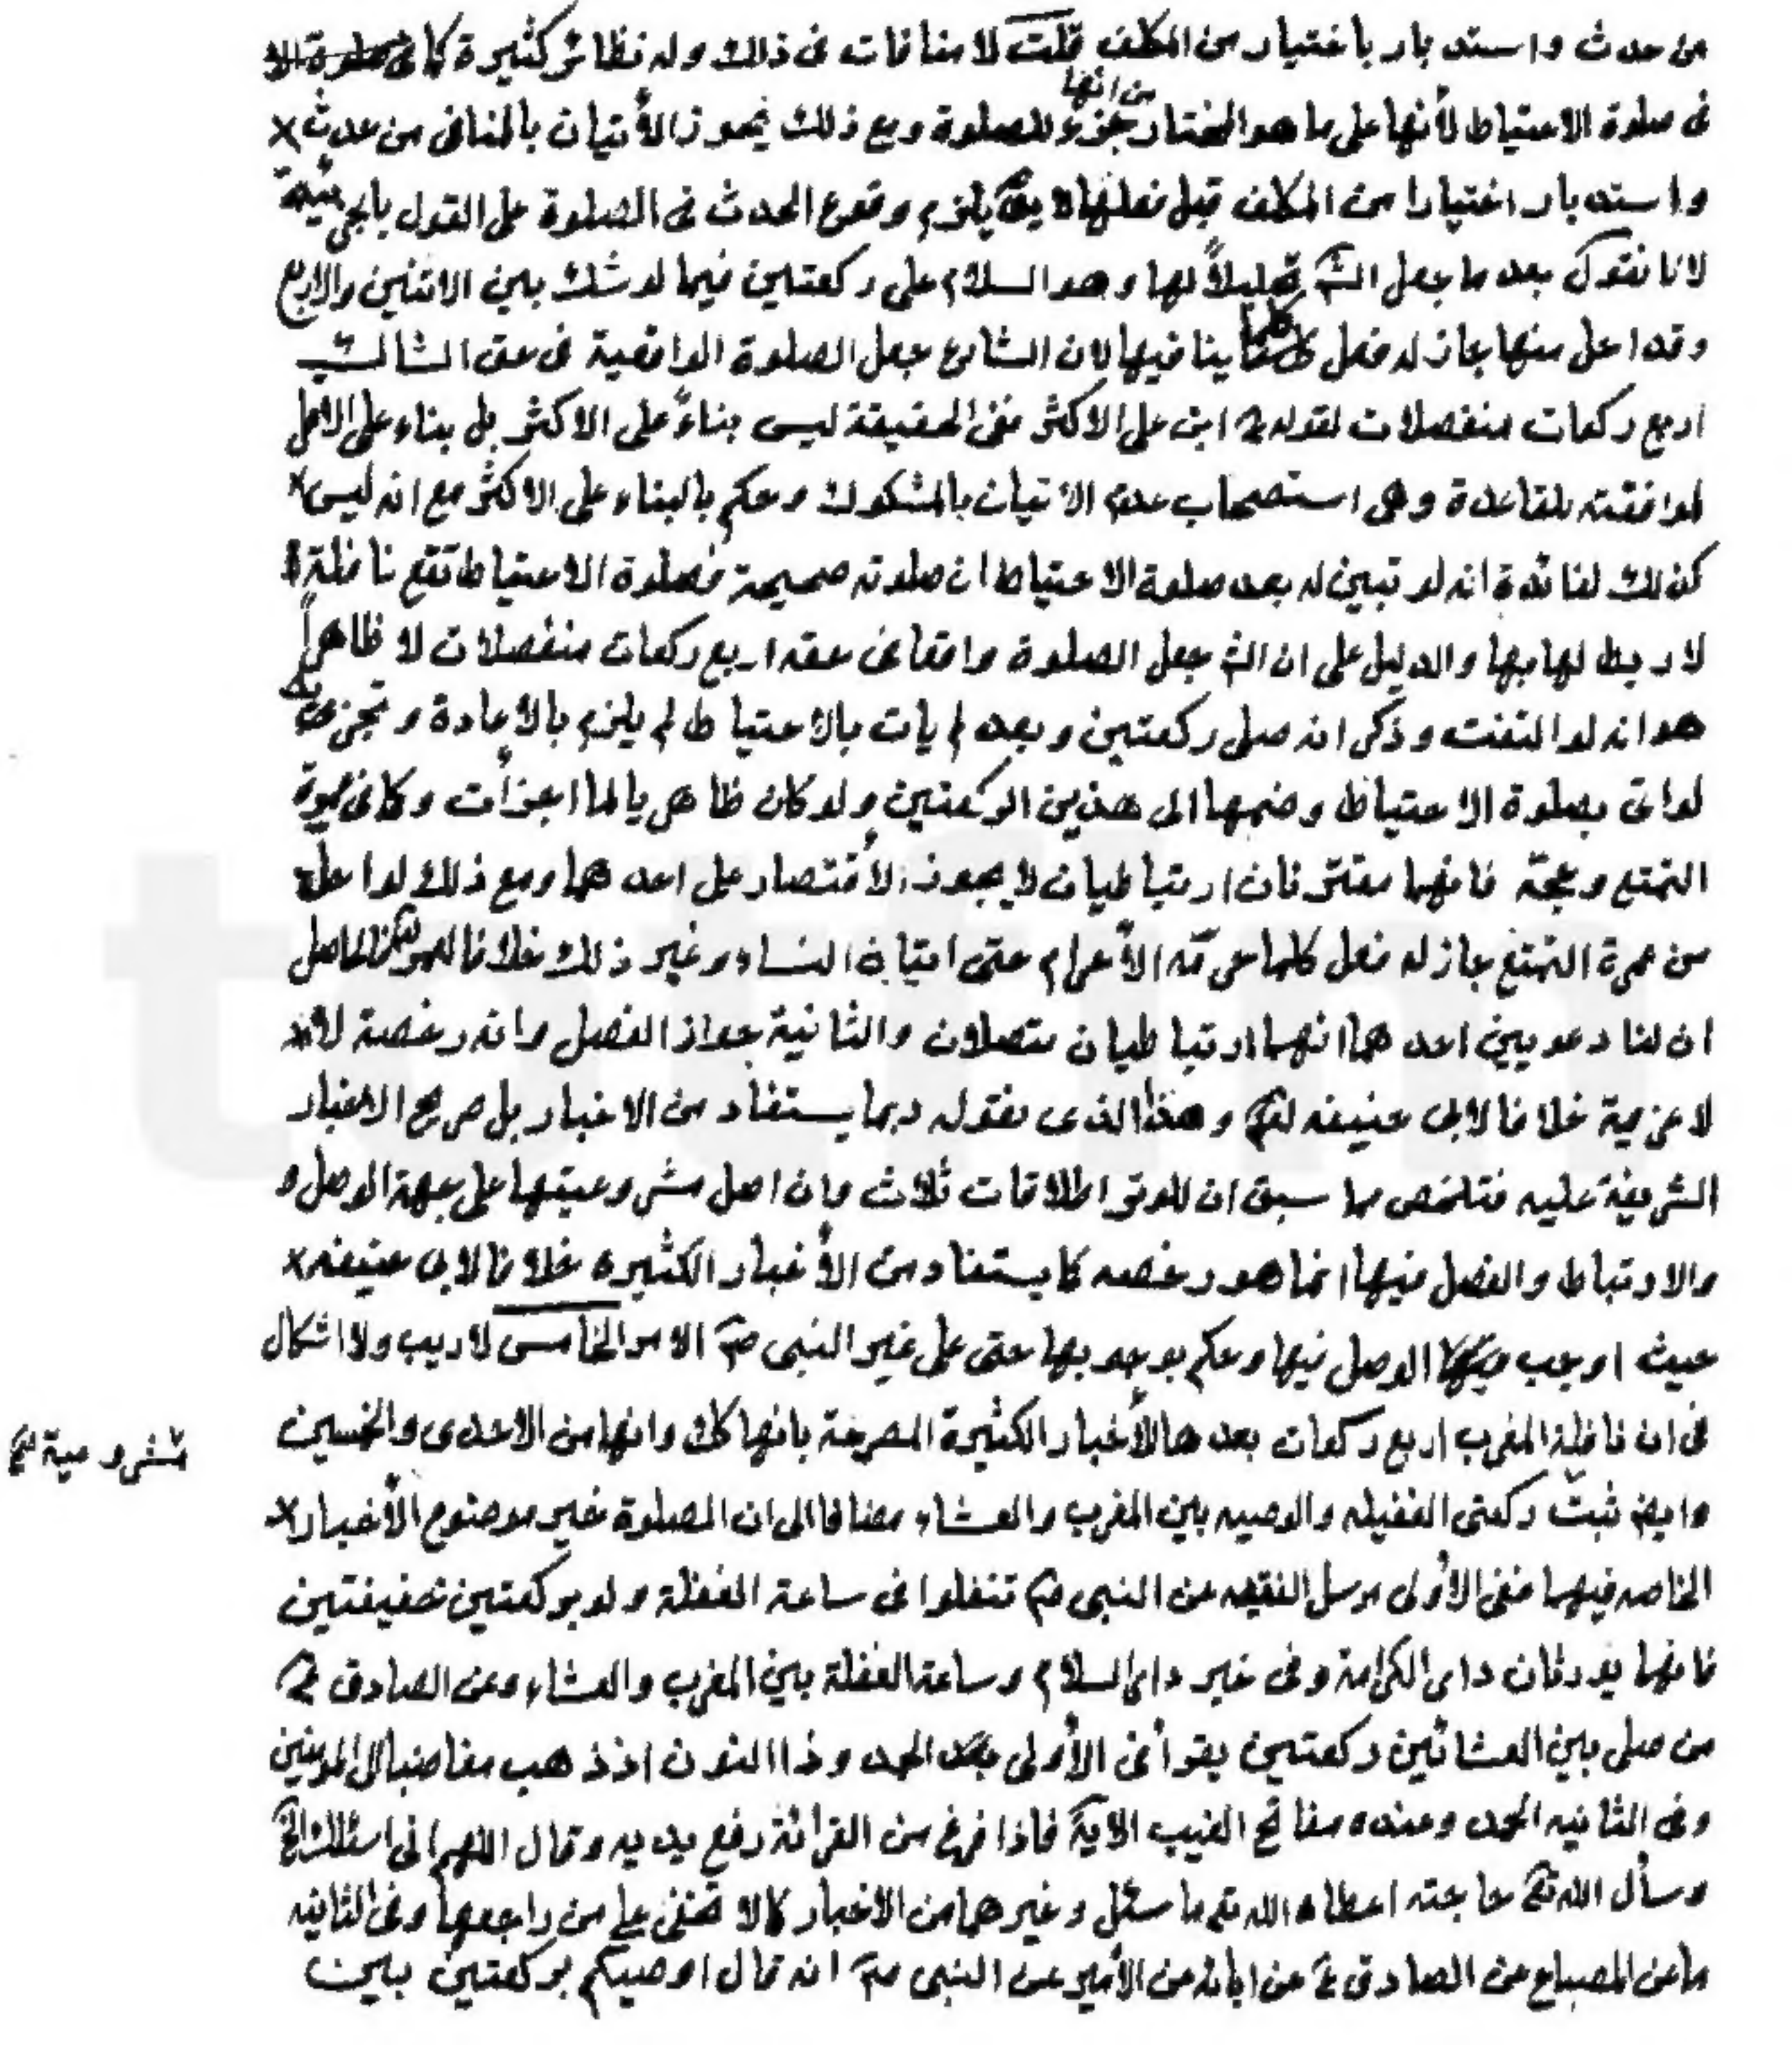 من حدث واستدبار باختيار من المكلف قلت لا منافات فى ذلك وله نظائر كثيرة كما فى صلوة الا
فى صلوة الاحتياط لأنها على ما هو المختار من انها جزء للصلوة ومع ذلك يجوز الأتيان بالمنافى من حدث ×
واستدبار اختيارا من المكلف قبل فعلها لا يقال يلزم وقوع الحدث فى الصلوة على القول بالجزئية
لانا نقول بعد ما جعل الش تحليلاً لها وهو السلام على ركعتين فيما لو شك بين الاثنين والاربع
وقد احل منها جاز له فعل كلما ينافيها لان الشارع جعل الصلوة الواقعية فى حق الشاك
اربع ركعات منفصلات لقوله ع ابن على الاكثر ففى الحقيقة ليس بناءً على الاكثر بل بناء على الاقل
لموافقته للقاعدة وهى استصحاب عدم الاتيان بالمشكوك وحكم بالبناء على الاكثر مع انه ليس ×
كذلك لفائدة انه لو تبين له بعد صلوة الاحتياط ان صلوته صحيحة فصلوة الاحتياط تقع نافلة
لا ربط لها بها والدليل على ان الش جعل الصلوة واقعا فى حقه اربع ركعات منفصلات لا ظاهراً
هو انه لو التفت وذكر انه صلى ركعتين وبعد لم يات بالاحتياط لم يلزم بالأعادة وتجزى
لو اتى بصلوة الاحتياط وضمها الى هذين الركعتين ولو كان ظاهريا لما اجزأت وكما فى عمرة
التمتع وحجة فانهما مفترقان ارتباطيان لا يجوز الأقتصار على احدهما ومع ذلك لو احل
من عمرة التمتع جاز له فعل كلما حرمه الأحرام حتى اتيان النساء وغير ذلك خلافا للعمر فالحاصل
ان لنا دعويين احدهما انهما ارتباطيان متصلان والثانية جواز الفصل وانه رخصة لا ×
لا عزيمة خلافا لابى حنيفه وهذا الذى نقوله ربما يستفاد من الاخبار بل صريح الاخبار
الشريفة عليه فتلخص مما سبق ان للوتر اطلاقات ثلاث وان اصل مشروعيتها على جهة الوصل و
والارتباط والفصل فيها انما هو رخصه كما يستفاد من الأخبار الكثيره خلافا لابى حنيفه ×
حيث اوجب الوصل فيها وحكم بوجوبها حتى على غير النبى ص الامر الخامس لا ريب ولا اشكال
فى ان نافلة المغرب اربع ركعات بعدها للأخبار الكثيرة المصرحة بانها كك وانها من الاحدى والخمسين
وايض ثبت مشروعية ركعتى الغفيله والوصيه بين المغرب والعشاء مضافا الى ان الصلوة خير موضوع الأخبار ×
الخاصه فيهما ففى الأولى مرسل الفقيه عن النبى ص تنفلوا فى ساعة الغفلة ولو بركعتين خفيفتين
فانهما يورثان دار الكرامة وفى خبر دار السلام وساعة الغفلة بين المغرب والعشاء وعن الصادق ع
من صلى بين العشائين ركعتين يقرأ فى الأولى بعد الحمد وذا النون اذ ذهب مغاضبا الى المومنين
وفى الثانيه الحمد وعنده مفاتح الغيب الاية فاذا فرغ من القرائة رفع يديه وقال اللهم انى اسئلك الخ
وسأل الله تع حاجته اعطاه الله تع ما سئل وغيرهما من الاخبار كما لا تخفى على من راجعها وفى الثانيه
ما عن المصباح عن الصادق ع عن ابائه عن الأمير عن النبى ص انه قال اوصيكم بركعتين بين